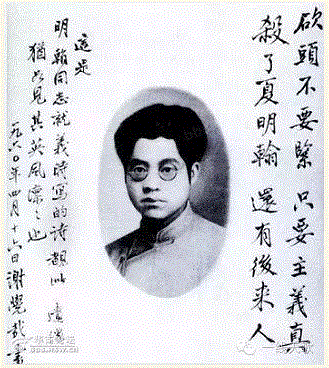 砍頭不要緊 只要主義真
殺了夏明翰 還有後来人
這是
明翰同志就義時寫的诗
猶如見其英風凛々也
一九六〇年四月十六日謝覺哉書